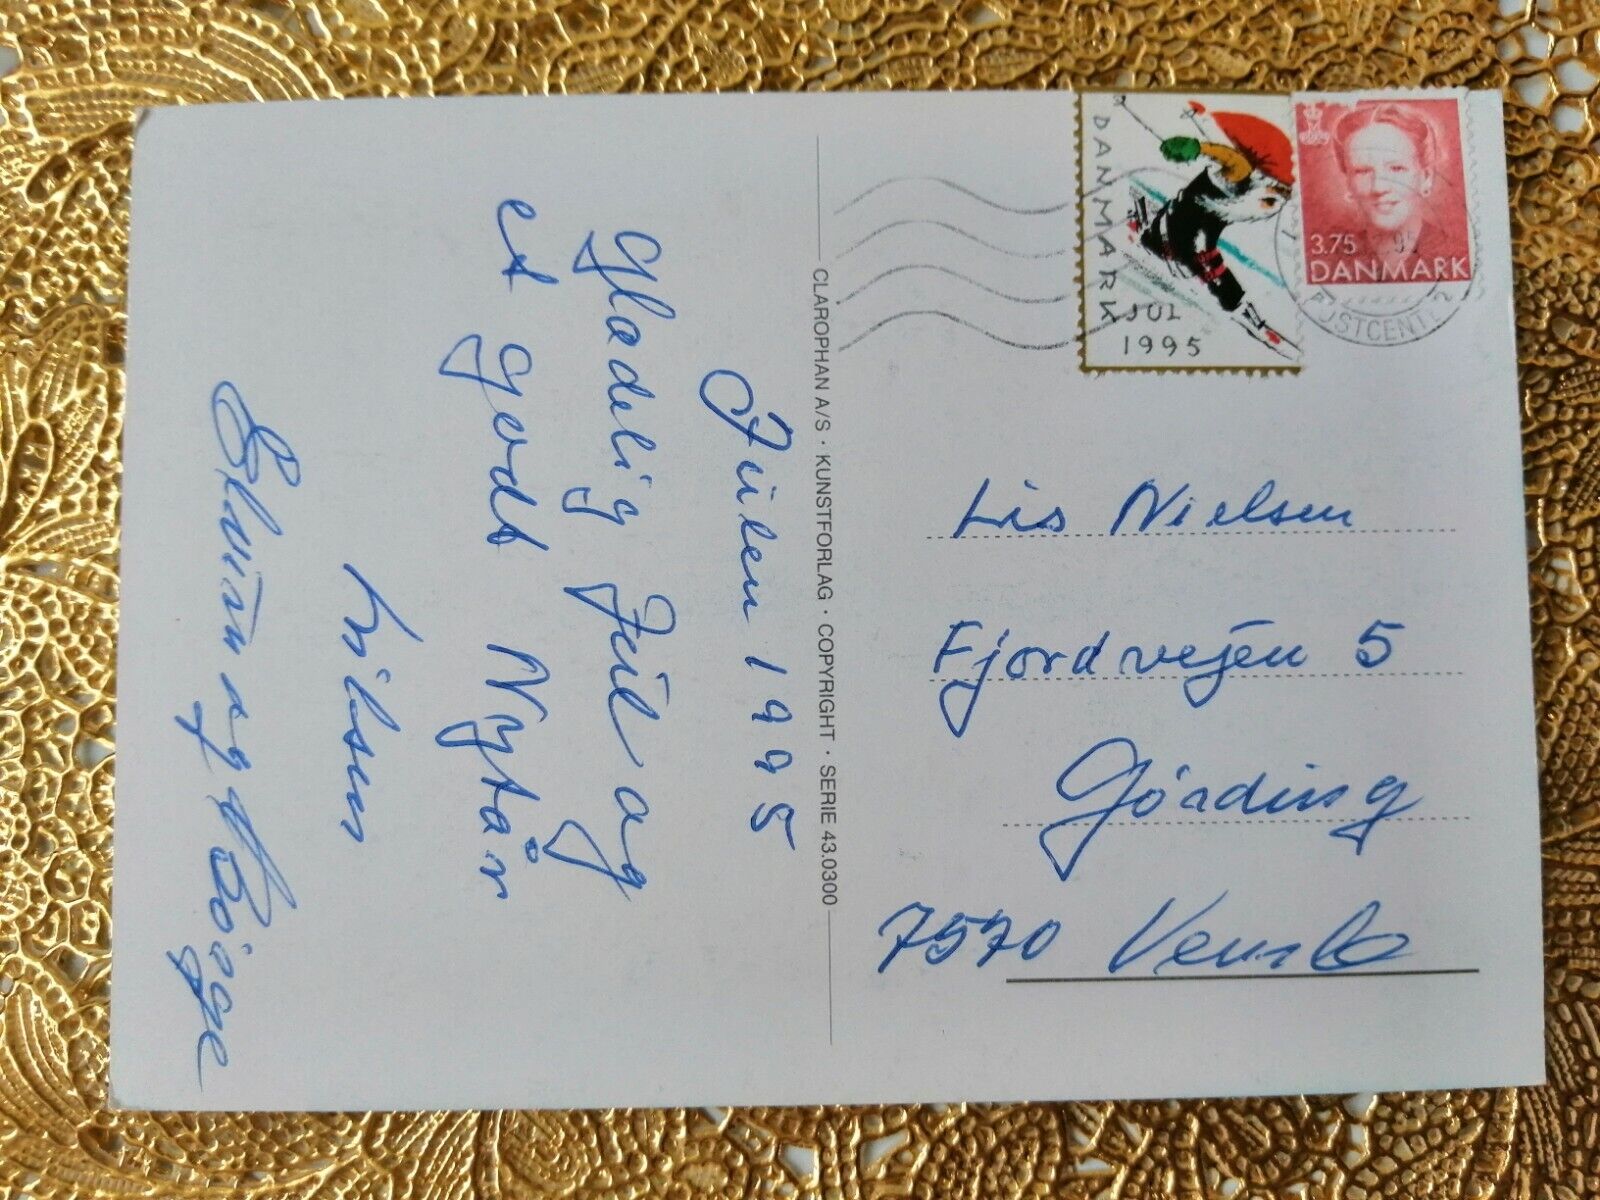 Julen 1995
Glædelig Jul og
et godt Nytår
hilsen
og Börge
CLAROPHAN A/S · KUNSTFORLAG · COPYRIGHT · SERIE 43.0300
DANMARK
JUL
1995
3.75
DANMARK
POSTCENTER 2
Lis Nielsen
Fjordvejen 5
Gørding
7570 Vemb